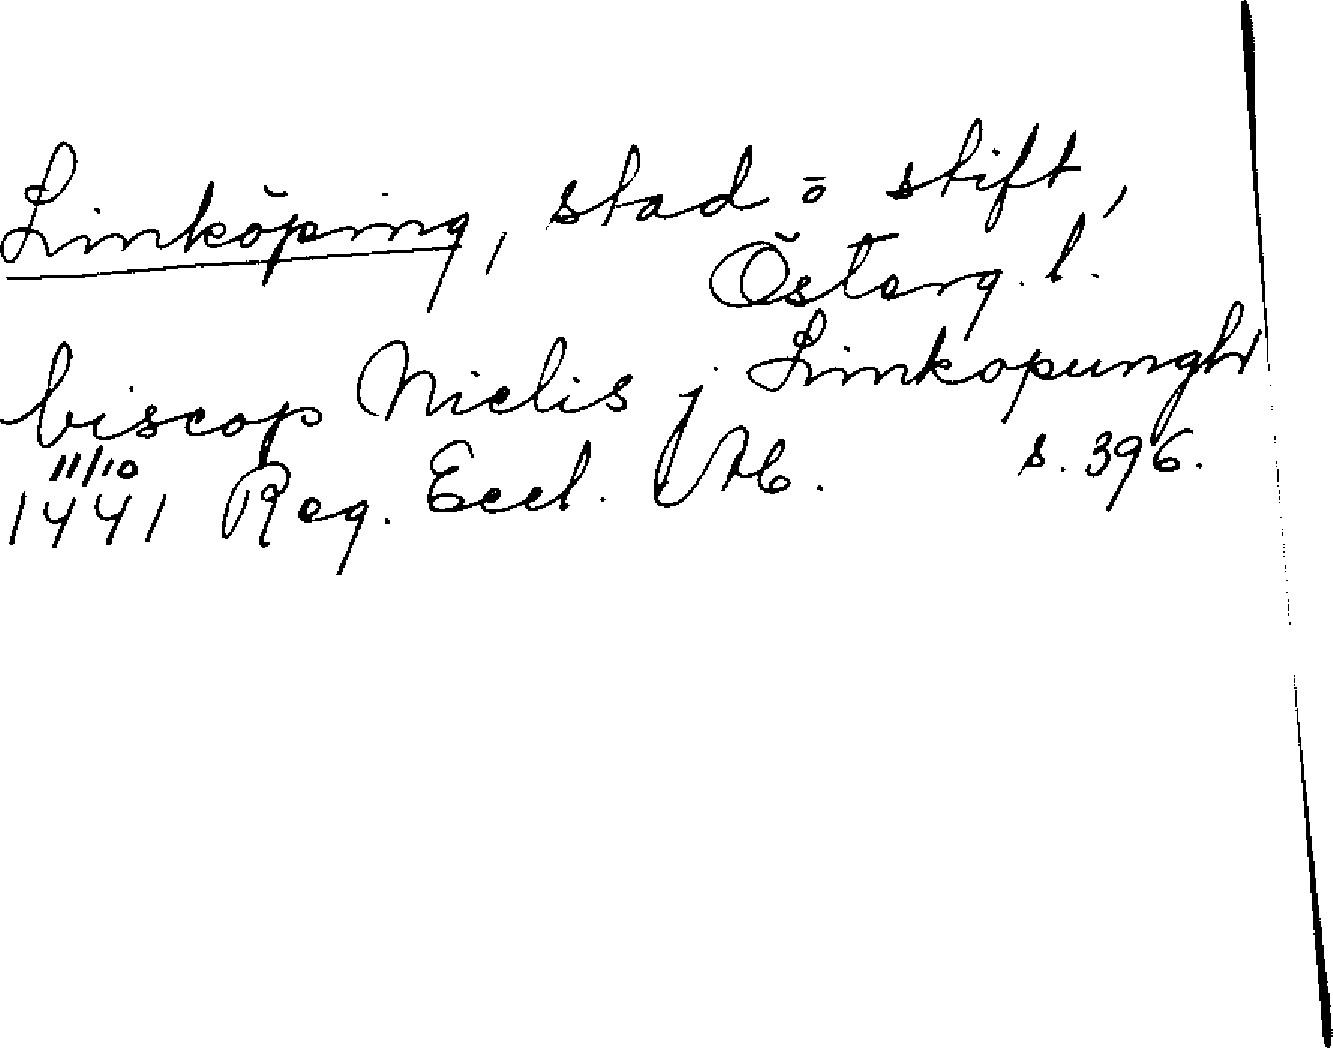 Linköping, stad o stift,
Österg. l.
biscop Nielis j Linkopungh
11/10
1441 Reg. Eccl. s. 396.